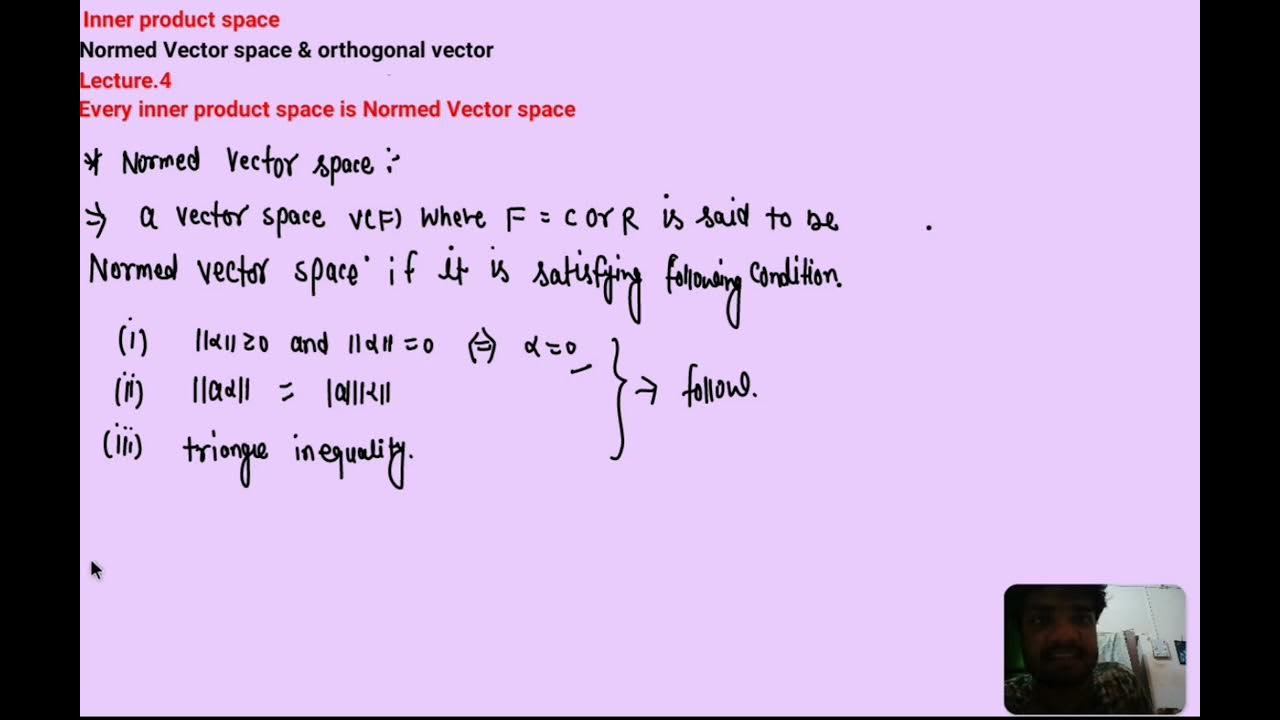 Inner product space
Normed Vector space & orthogonal vector
Lecture.4
Every inner product space is Normed Vector space
* Normed Vector space :-
⇒ a vector space V(F) where F = C or R is said to be
Normed vector space if it is satisfying following condition.
(i) ||α|| ≥ 0 and ||α|| = 0 ⇔ α = 0
(ii) ||aα|| = |a| ||α||
(iii) triangle inequality.
} → follow.